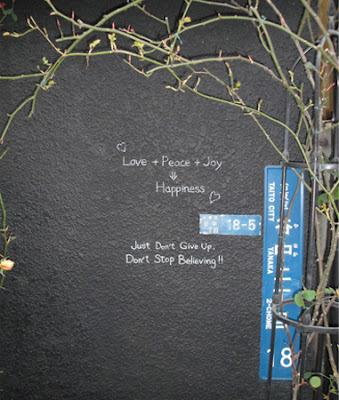 Love + Peace + Joy
⇓
Happiness
18-5
Just Don't Give Up.
Don't Stop Believing!!
TAITO CITY
YANAKA
2-CHOME
18